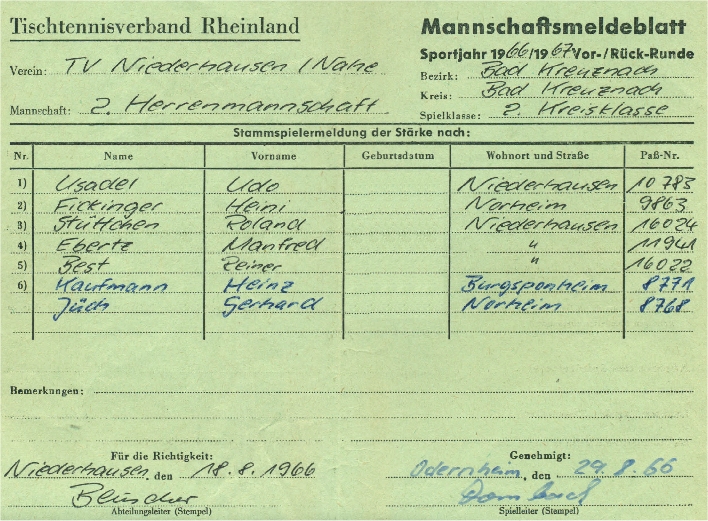 Tischtennisverband Rheinland
Mannschaftsmeldeblatt
Sportjahr 1966/1967 Vor-/Rück-Runde
Verein: TV Niederhausen/Nahe
Bezirk: Bad Kreuznach
Kreis: Bad Kreuznach
Mannschaft: 2. Herrenmannschaft
Spielklasse: 2. Kreisklasse
Stammspielermeldung der Stärke nach:
Nr. Name Vorname Geburtsdatum Wohnort und Straße Paß-Nr.
1) Usadel Udo Niederhausen 10783
2) Fickinger Heini Norheim 9863
3) Stüttchen Roland Niederhausen 16024
4) Ebertz Manfred " 11941
5) Best Reiner " 16022
6) Kaufmann Heinz Burgsponheim 8771
Jüch Gerhard Norheim 8768
Bemerkungen:
Für die Richtigkeit: Genehmigt:
Niederhausen, den 18.8.1966 Odernheim, den 29.8.66
Blüscher Dombach
Abteilungsleiter (Stempel) Spielleiter (Stempel)